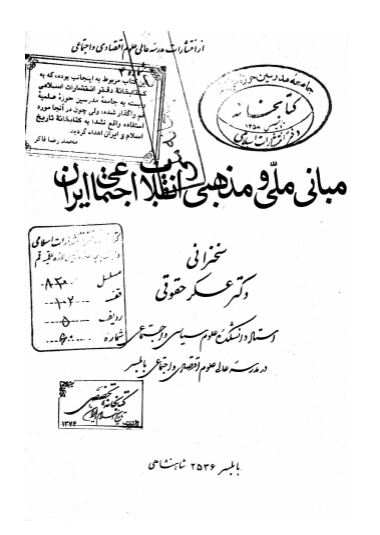 از انتشارات مدرسه عالی علوم اقتصادی و اجتماعی
شماره ۳
کتاب مربوط به اینجانب بوده، که به
کتابخانهٔ دفتر انتشارات اسلامی
بسته به جامعهٔ مدرسین حوزهٔ علمیهٔ
قم واگذار شده، ولی چون در آنجا مورد
استفاده واقع نشد، به کتابخانهٔ تاریخ
اسلام و ایران اهداء گردید.
محمد رضا فاکر
جامعه مدرسین حوزه
کتابخانه
تأسیس ۱۳۵۸
دفتر انتشارات اسلامی
مبانی ملی و مذهبی انقلاب اجتماعی ایران
سخنرانی
دکتر عسکر حقوقی
استاد دانشکده علوم سیاسی و اجتماعی
در مدرسه عالی علوم اقتصادی و اجتماعی بابلسر
انتشارات اسلامی
مسلسل ۸۳۰
قفسه ۱۰۲
ردیف ۵
شماره ۶۰
کتابخانه تخصصی
تاریخ اسلام و ایران
۱۳۷۴
بابلسر ۲۵۳۶ شاهنشاهی